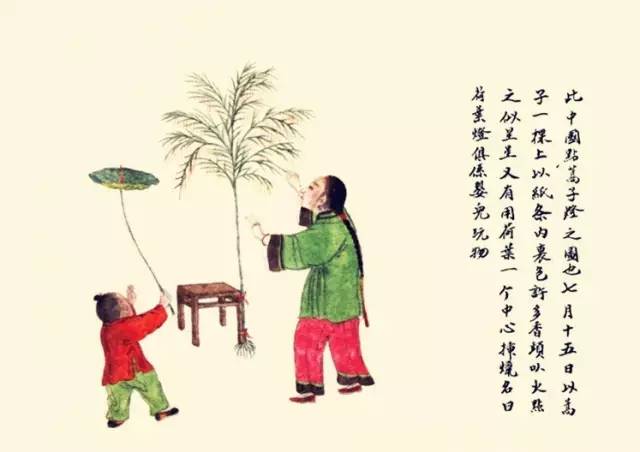 此中國點蒿子燈之圖也七月十五日以蒿
子一棵上以紙条内裹包許多香頭以火點
之似星星又有用荷葉一个中心插燭名曰
荷葉燈俱係嬰児玩物